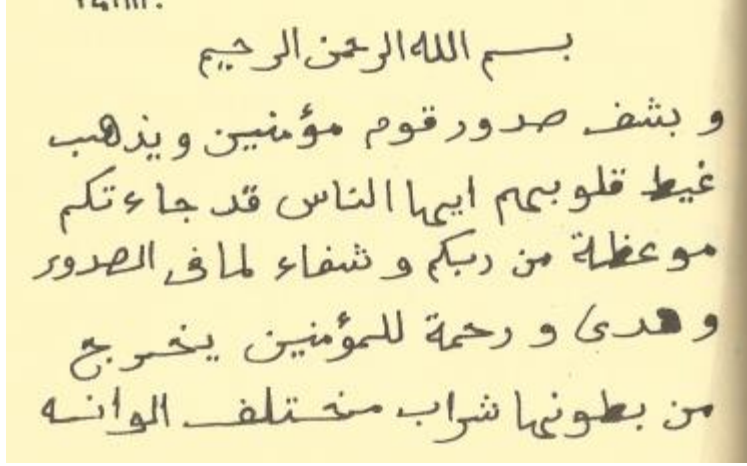 بسم الله الرحمن الرحيم
و بشف صدور قوم مؤمنين ويذهب
غيط قلوبهم ايها الناس قد جاءتكم
موعظة من ربكم و شفاء لما في الصدور
و هدى و رحمة للمؤمنين يخرج
من بطونها شراب مختلف الوانه